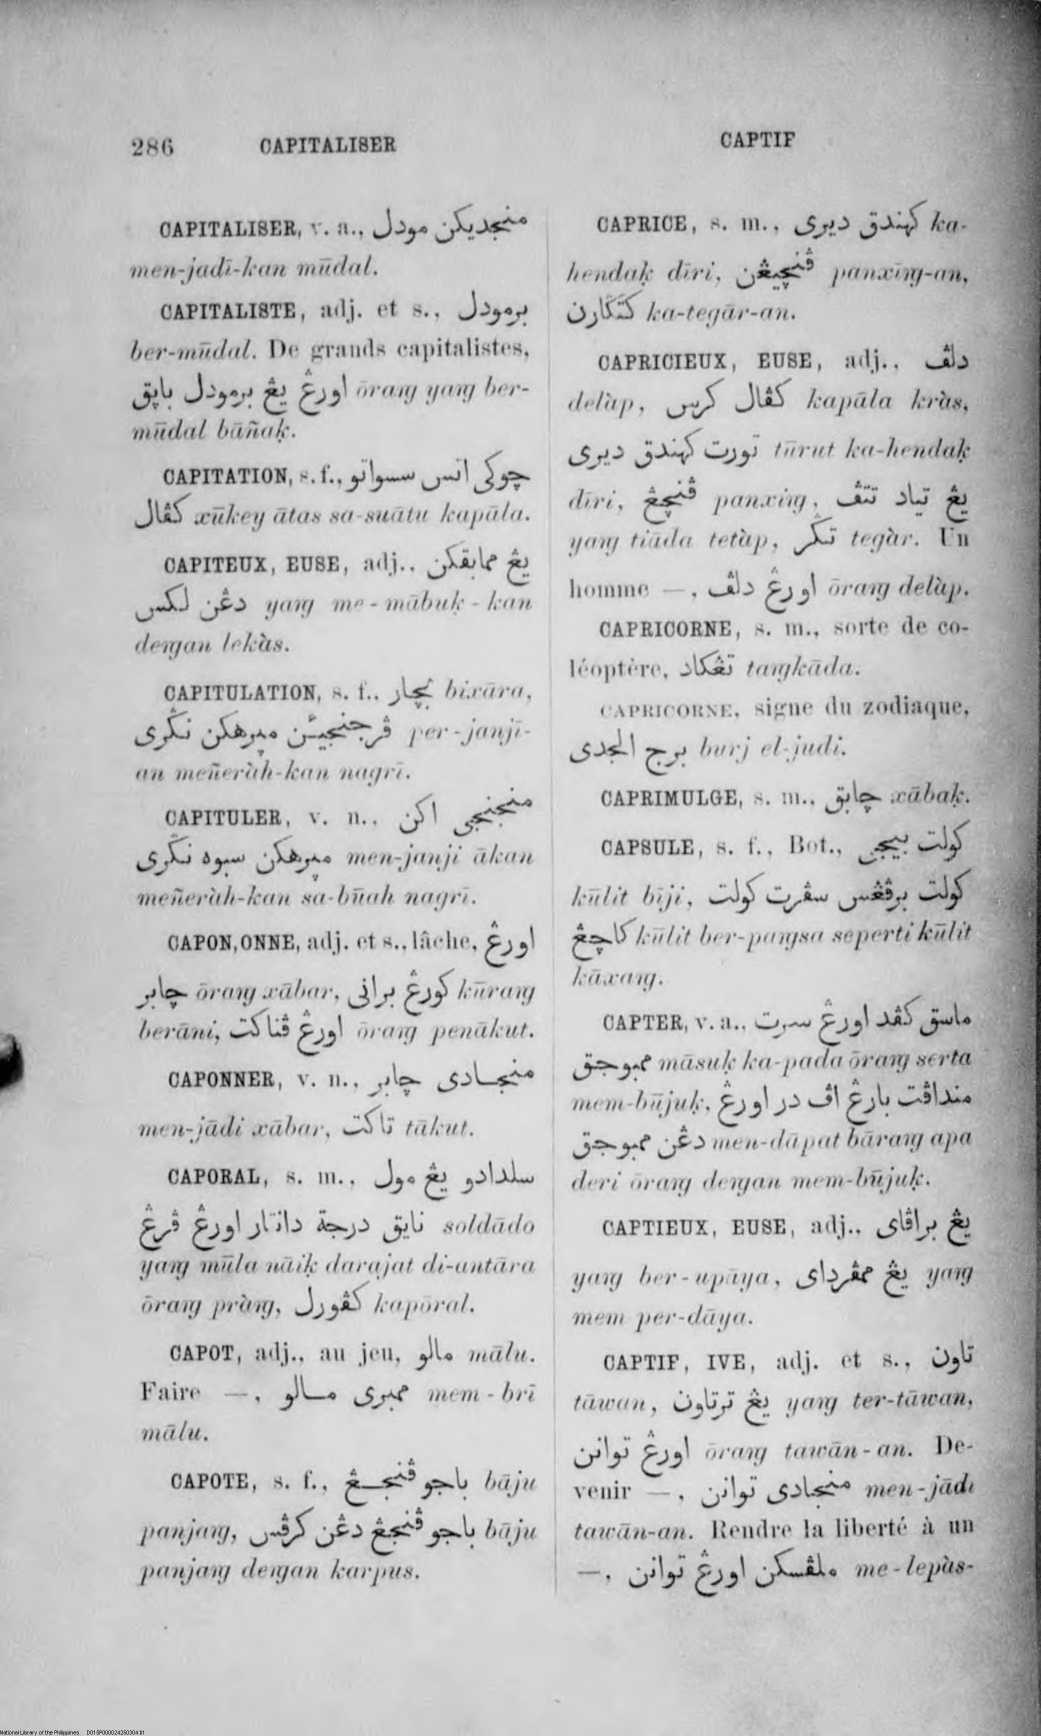 286 CAPITALISER
CAPTIF
CAPITALISER, v. a., منجديكن مودل
men-jadī-kan mūdal.
CAPITALISTE, adj. et s., برمودل
ber-mūdal. De grands capitalistes,
اورڠ يڠ برمودل باڽق ōraŋ yaŋ ber-
mūdal bāñaḳ.
CAPITATION, s. f., چوكي اتس سسواتو
كڤال xūkey ātas sa-suātu kapāla.
CAPITEUX, EUSE, adj., يڠ ممابقكن
دڠن لكس yaŋ me-mābuḳ-kan
deŋan lekàs.
CAPITULATION, s. f., بچار bixāra,
ڤرجنجيئن مڽرهكن نݢري per-janjī-
an meñeràh-kan nagrī.
CAPITULER, v. n., منجنجي اكن
مڽرهكن سبوه نݢري men-janji ākan
meñeràh-kan sa-būah nagrī.
CAPON, ONNE, adj. et s., lâche, اورڠ
چابر ōraŋ xābar, كورڠ براني kūraŋ
berāni, اورڠ ڤناكت ōraŋ penākut.
CAPONNER, v. n., منجادي چابر
men-jādi xābar, تاكت tākut.
CAPORAL, s. m., سلدادو يڠ مول
نايق درجة دانتار اورڠ ڤرڠ soldādo
yaŋ mūla nāiḳ darajat di-antāra
ōraŋ pràŋ, كڤورل kapōral.
CAPOT, adj., au jeu, مالو mālu.
Faire —, ممبري مالو mem-brī
mālu.
CAPOTE, s. f., باجو ڤنجڠ bāju
panjaŋ, باجو ڤنجڠ دڠن كرڤس bāju
panjaŋ deŋan karpus.
CAPRICE, s. m., كهندق ديري ka-
hendaḳ dīri, ڤنچيڠن panxīŋ-an,
كتݢارن ka-tegār-an.
CAPRICIEUX, EUSE, adj., دلڤ
delàp, كڤال كرس kapāla kràs,
تورت كهندق ديري tūrut ka-hendaḳ
dīri, ڤنچڠ panxiŋ, يڠ تياد تتڤ
yaŋ tiāda tetàp, تݢر tegàr. Un
homme —, اورڠ دلڤ ōraŋ delàp.
CAPRICORNE, s. m., sorte de co-
léoptère, تڠكاد taŋkāda.
CAPRICORNE, signe du zodiaque,
برج الجدى burj el-judi.
CAPRIMULGE, s. m., چابق xābaḳ.
CAPSULE, s. f., Bot., كولت بيجي
kūlit bīji, كولت برڤڠس سڤرت كولت
كاچڠ kūlit ber-paŋsa seperti kūlit
kāxaŋ.
CAPTER, v. a., ماسق كڤد اورڠ سرت
ممبوجق māsuḳ ka-pada ōraŋ serta
mem-būjuḳ, منداڤت بارڠ اڤ در اورڠ
دڠن ممبوجق men-dāpat bāraŋ apa
deri ōraŋ deŋan mem-būjuḳ.
CAPTIEUX, EUSE, adj., يڠ براڤاي
yaŋ ber-upāya, يڠ ممڤرداي yaŋ
mem per-dāya.
CAPTIF, IVE, adj. et s., تاون
tāwan, يڠ ترتاون yaŋ ter-tāwan,
اورڠ توانن ōraŋ tawān-an. De-
venir —, منجادي توانن men-jādi
tawān-an. Rendre la liberté à un
—, ملڤسكن اورڠ توانن me-lepàs-
National Library of the Philippines